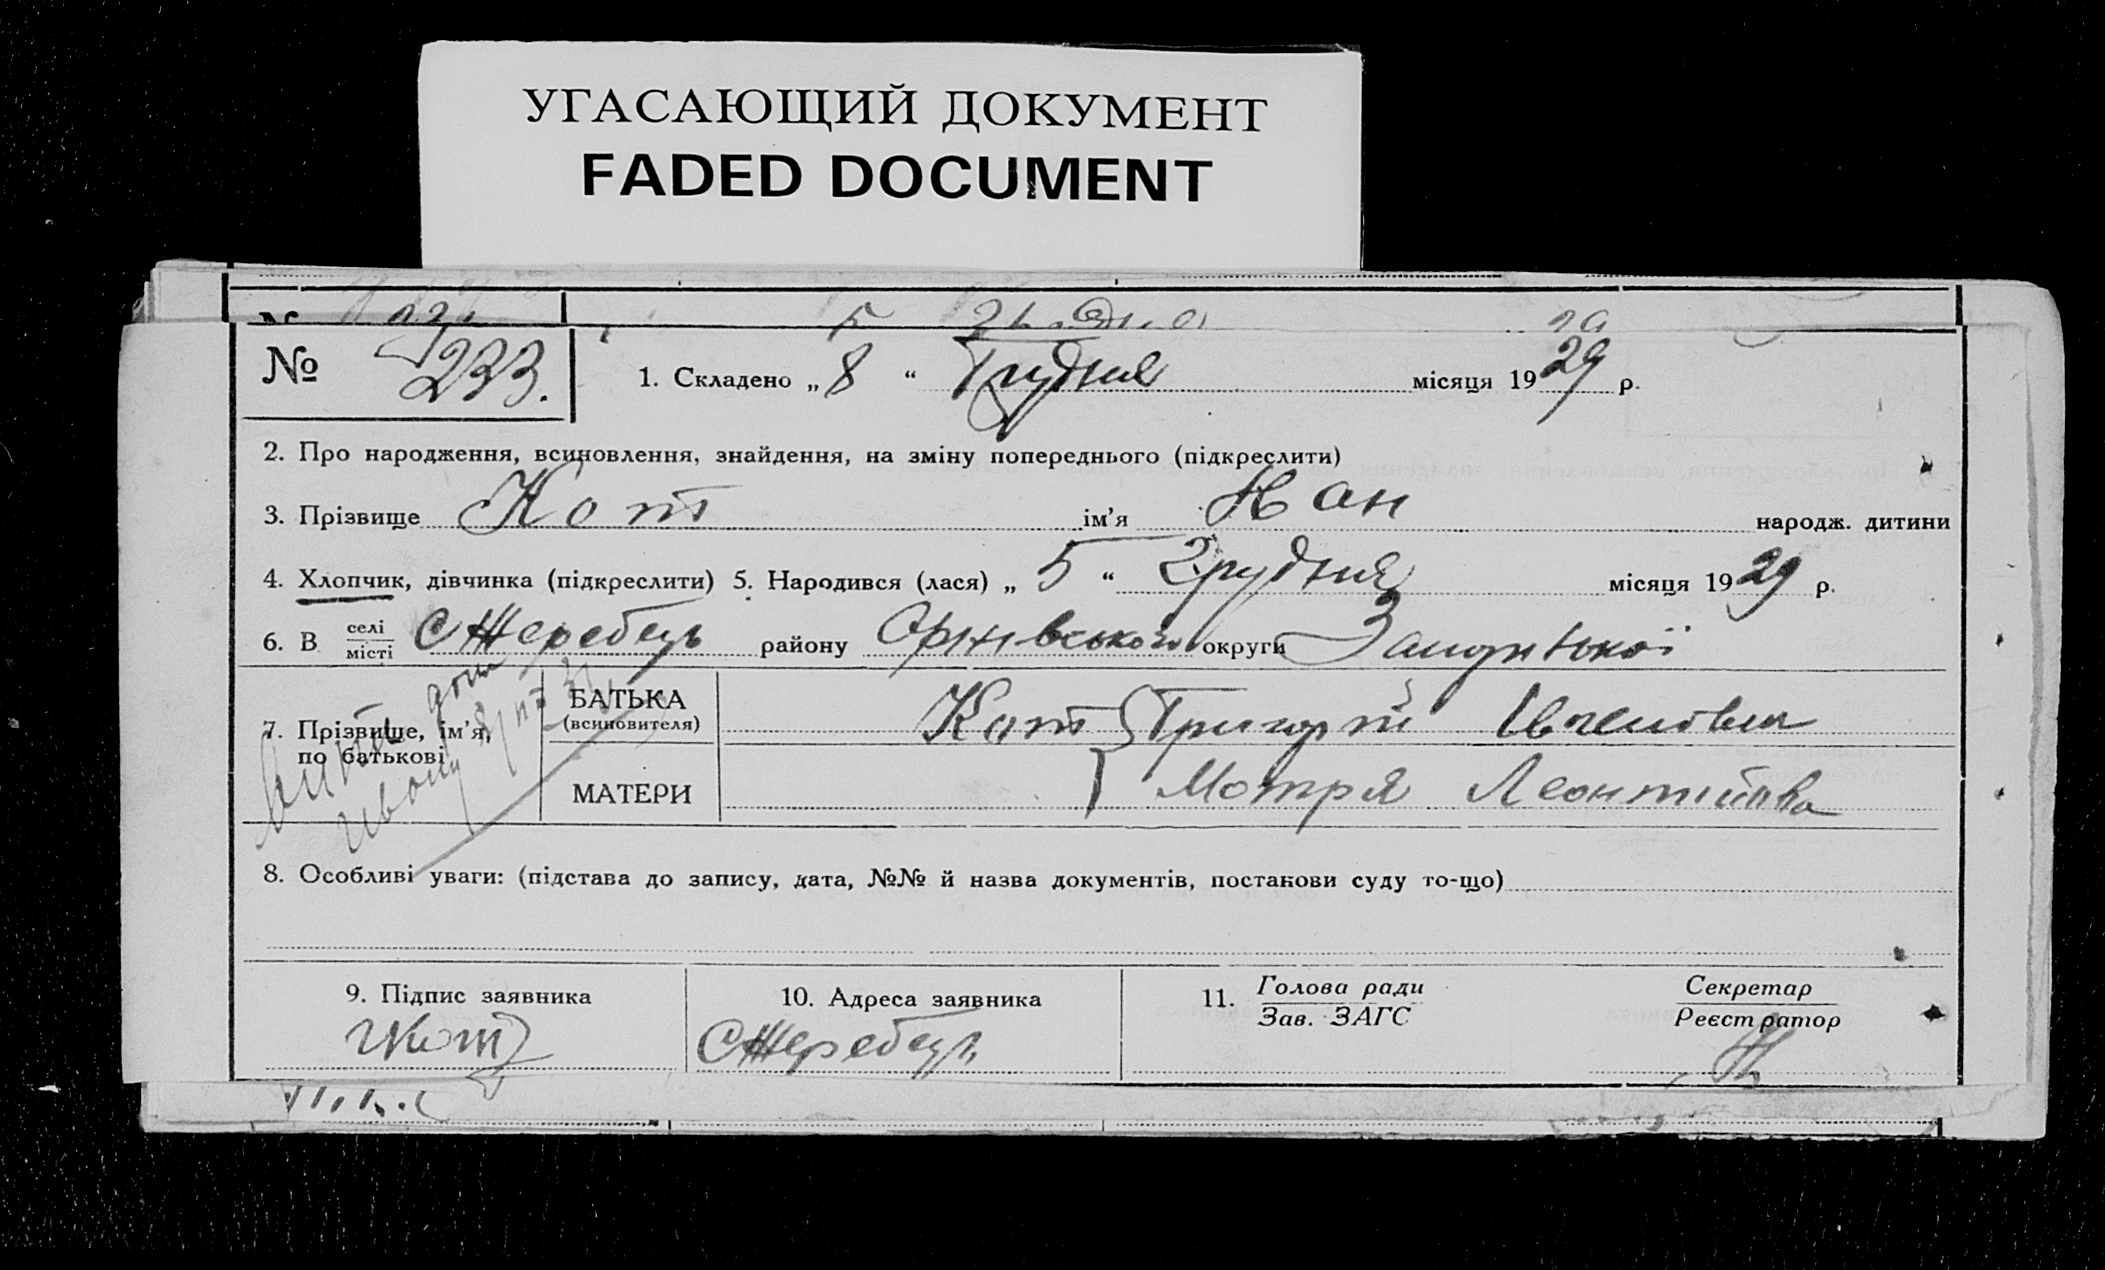 УГАСАЮЩИЙ ДОКУМЕНТ
FADED DOCUMENT
№ 233. 1. Складено „ 8 “ Грудня місяця 1929 р.
2. Про народження, всиновлення, знайдення, на зміну попереднього (підкреслити)
3. Прізвище Кот ім’я народж. дитини
4. Хлопчик, дівчинка (підкреслити) 5. Народився (лася) „ 5 “ Грудня місяця 1929 р.
6. В селі місті С Жеребець району округи
7. Прізвище, ім’я, по батькові
БАТЬКА (всиновителя) Кот Григорій
МАТЕРИ Мотря
8. Особливі уваги: (підстава до запису, дата, №№ й назва документів, постанови суду то-що)
9. Підпис заявника 10. Адреса заявника 11. Голова ради Секретар
Зав. ЗАГС Реєстратор
Кот С Жеребець